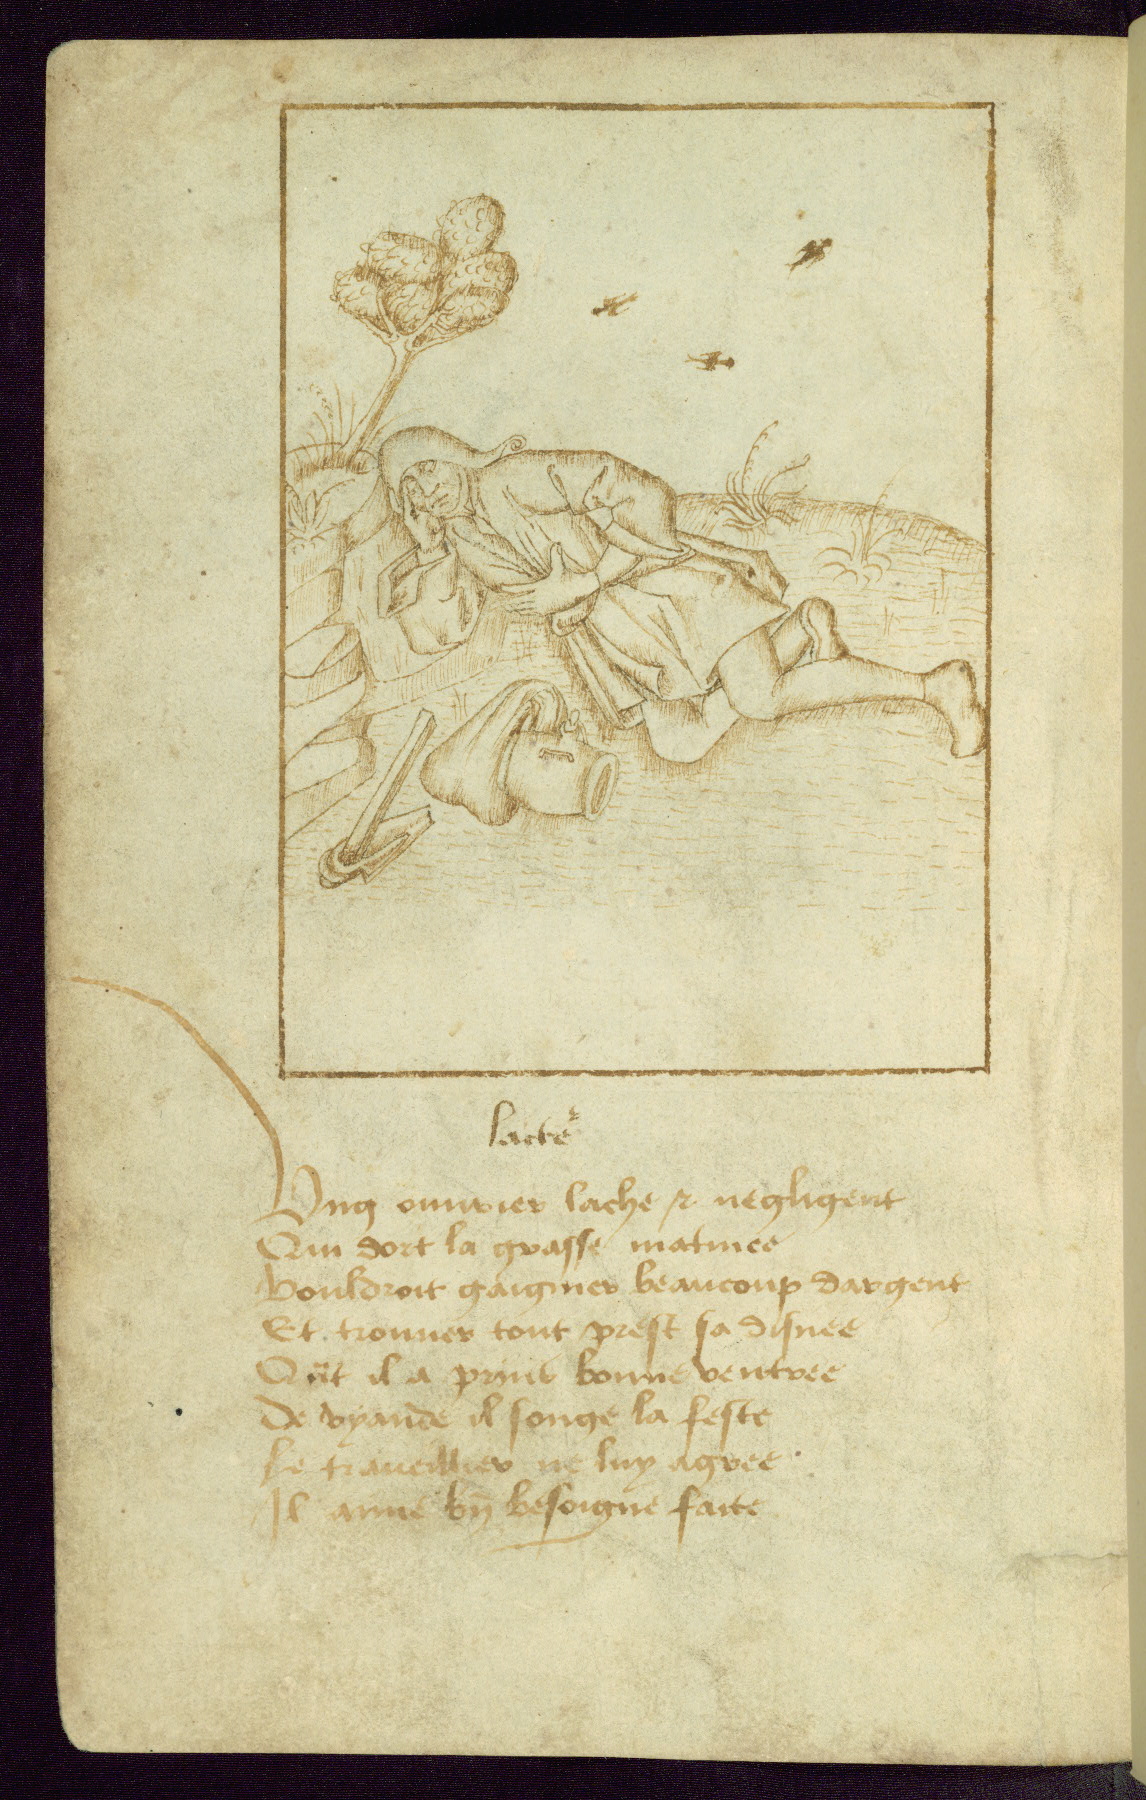 lacteᷣ
Ung ouurier lache & negligent
Qui dort la grasse matinee
Vouldroit gaigner beaucoup dargent
Et trouuer tout prest sa disnee
Qūt il a prins bonne ventree
De vyande il songe la feste
Le traueillier ne luy agree
Il aime bn̄ besoigne faite